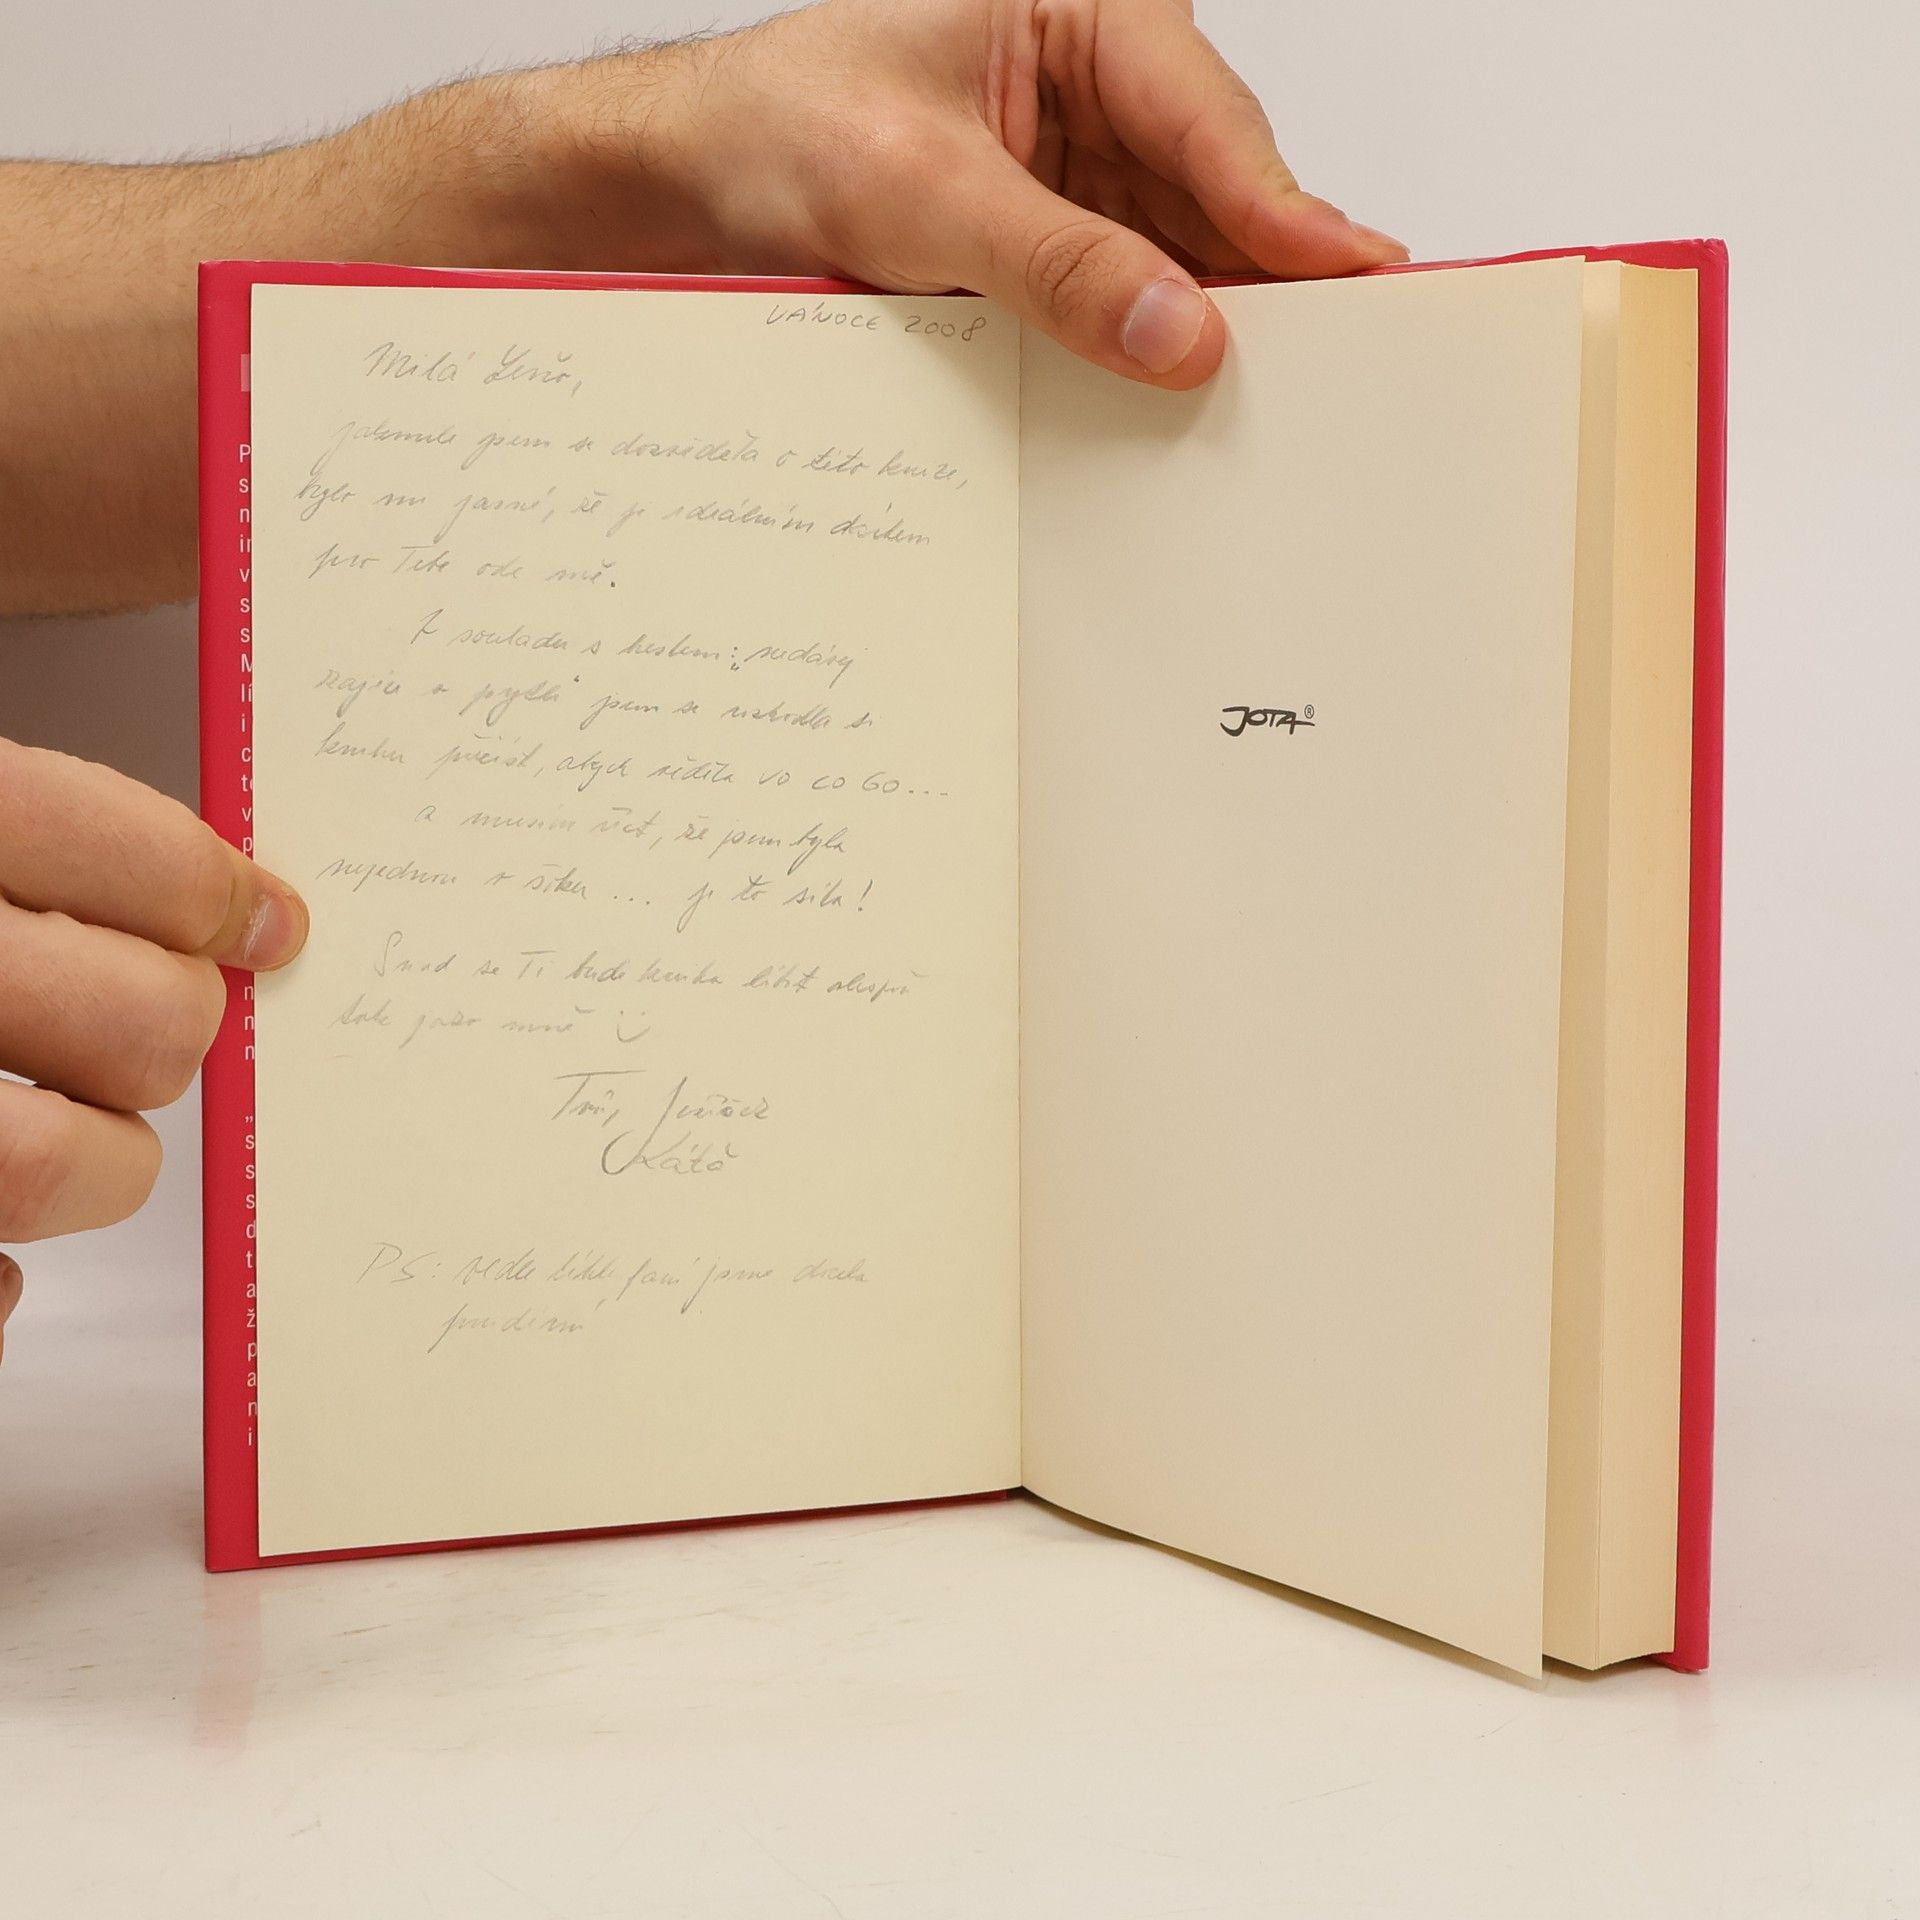 VÁNOCE 2008
Milá Leňo,
jakmile jsem se dozvěděla o této knize,
bylo mi jasné, že je ideálním dárkem
pro Tebe ode mě.
V souladu s heslem: „nedávej
zajíce v pytli“ jsem se rozhodla si
knihu přečíst, abych věděla VO CO GO...
a musím říct, že jsem byla
nejednou v šoku ... je to síla!
Snad se Ti bude kniha líbit alespoň
tak jako mně
Tvů, Ježíšek
Káťa
PS: vedle téhle paní jsme docela
JOTA®
P
s
n
v
s
s
M
i
c
v
p
n
n
n
„
s
s
s
d
t
a
ž
p
a
n
i